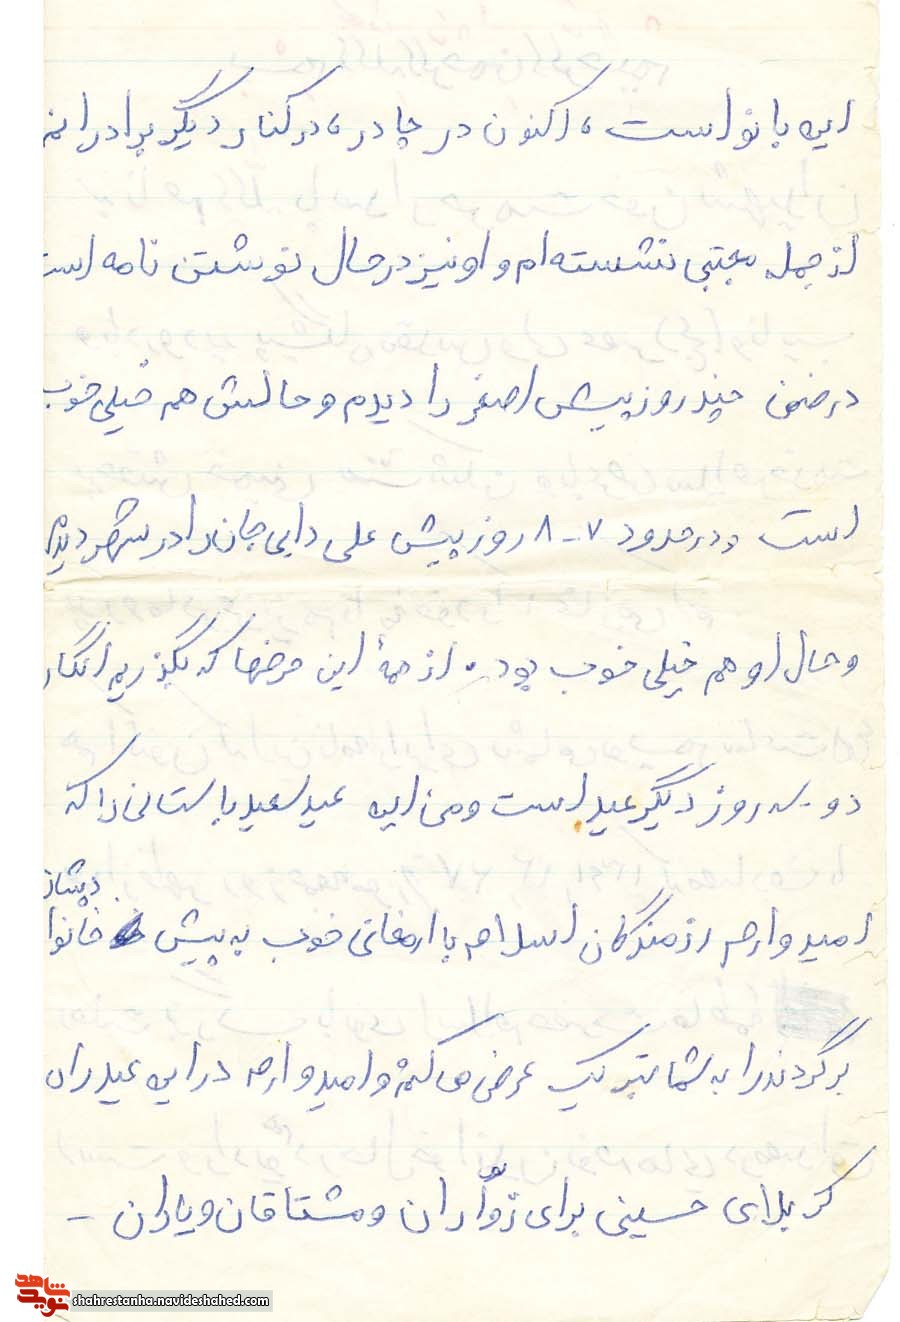 این بانو است ، اکنون در چادر ، در کنار دیگر برادرانم
از جمله مجتبی نشسته‌ام و او نیز در حال نوشتن نامه است
در ضمن چند روز پیش اصغر را دیدم و حالش هم خیلی خوب
است و در حدود ۷-۸ روز پیش علی دایی جان را در شهر دیدم
و حال او هم خیلی خوب بود . از همهٔ این حرفها که بگذریم انگار
دو سه روز دیگر عید است و من این عید سعید باستانی را که
امیدوارم رزمندگان اسلام با ارمغانی خوب به پیش خانوا
دیشان
برگردند را به شما تبریک عرض می‌کنم و امیدوارم در این عید راه
کربلای حسینی برای زوّاران و مشتاقان و یاران -
شاهد
نوید
shahrestanha.navideshahed.com